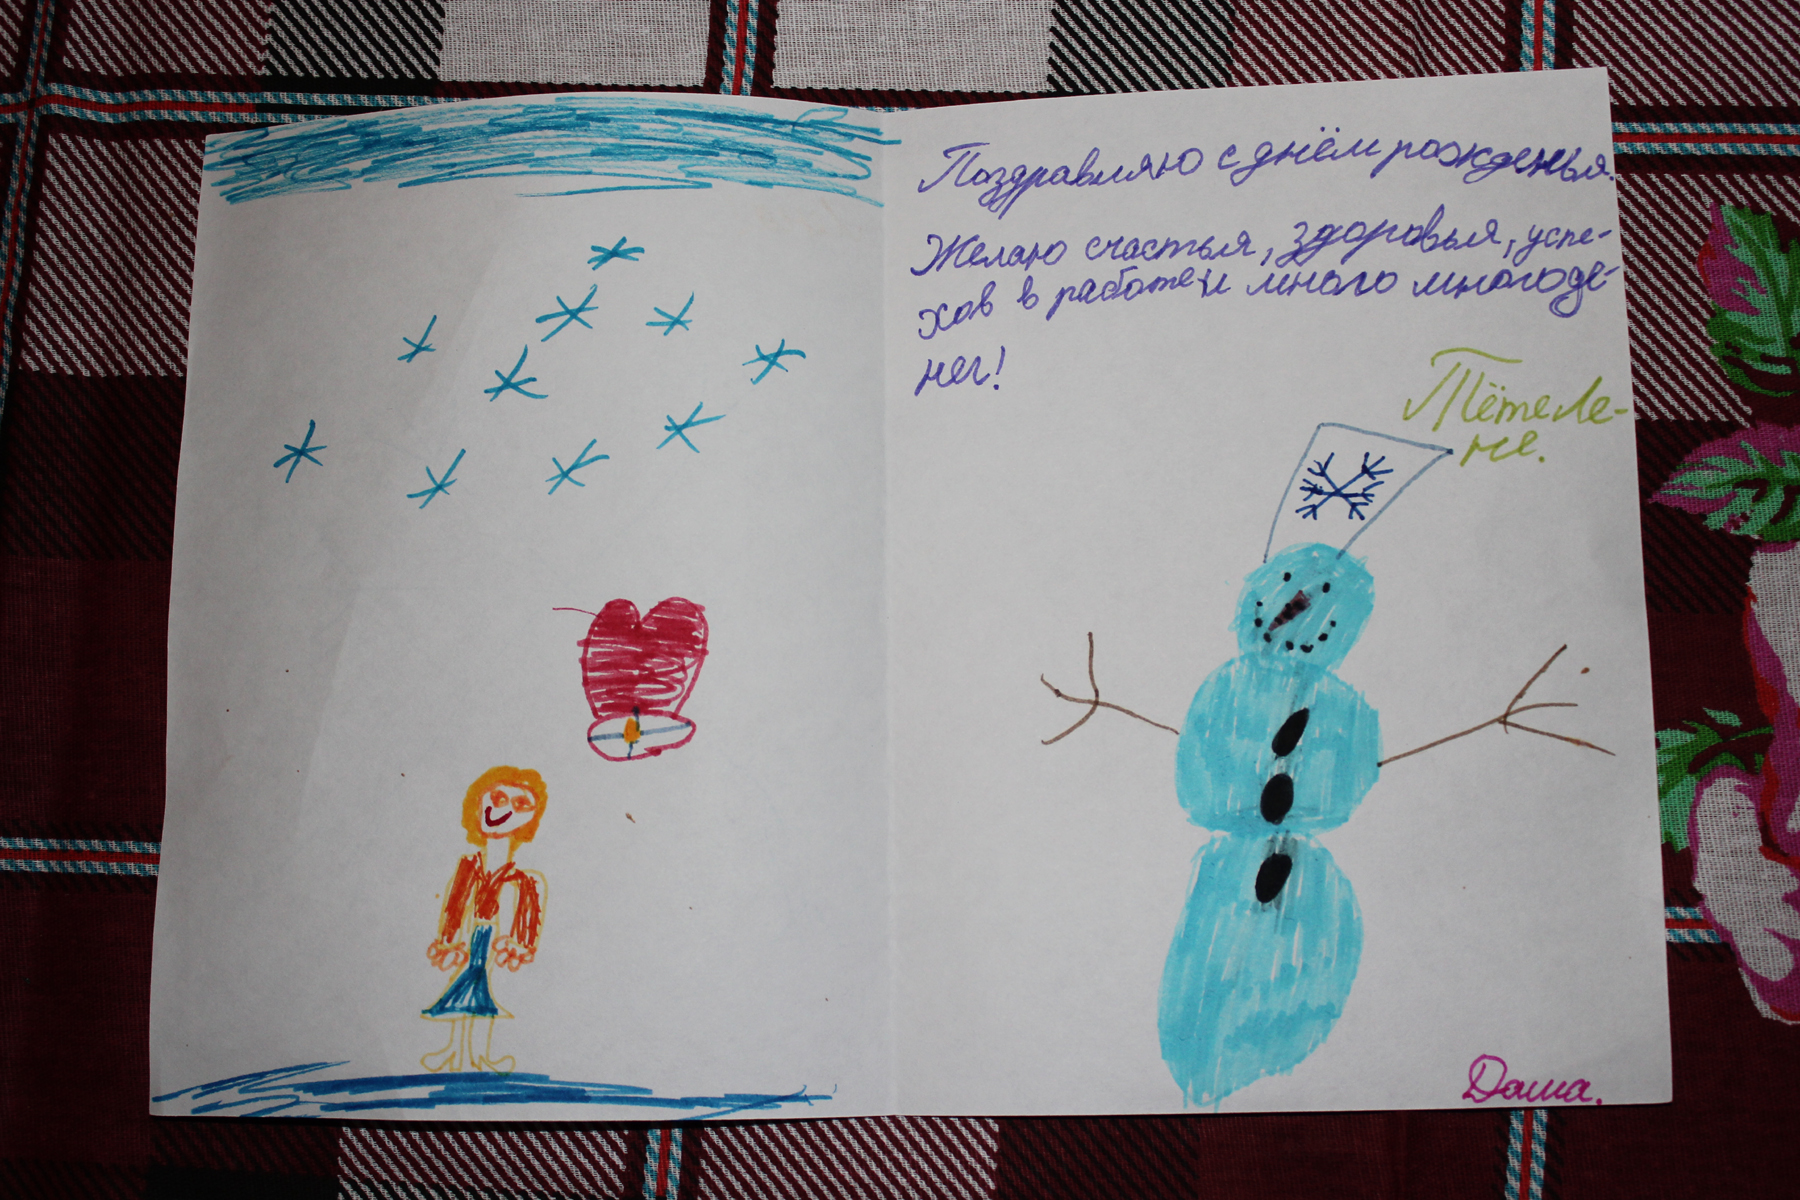 Поздравляю с днём рожденья.
Желаю счастья, здоровья, успе-
хов в работе и много многоде-
нег!
Тёте Ле-
не.
Даша.